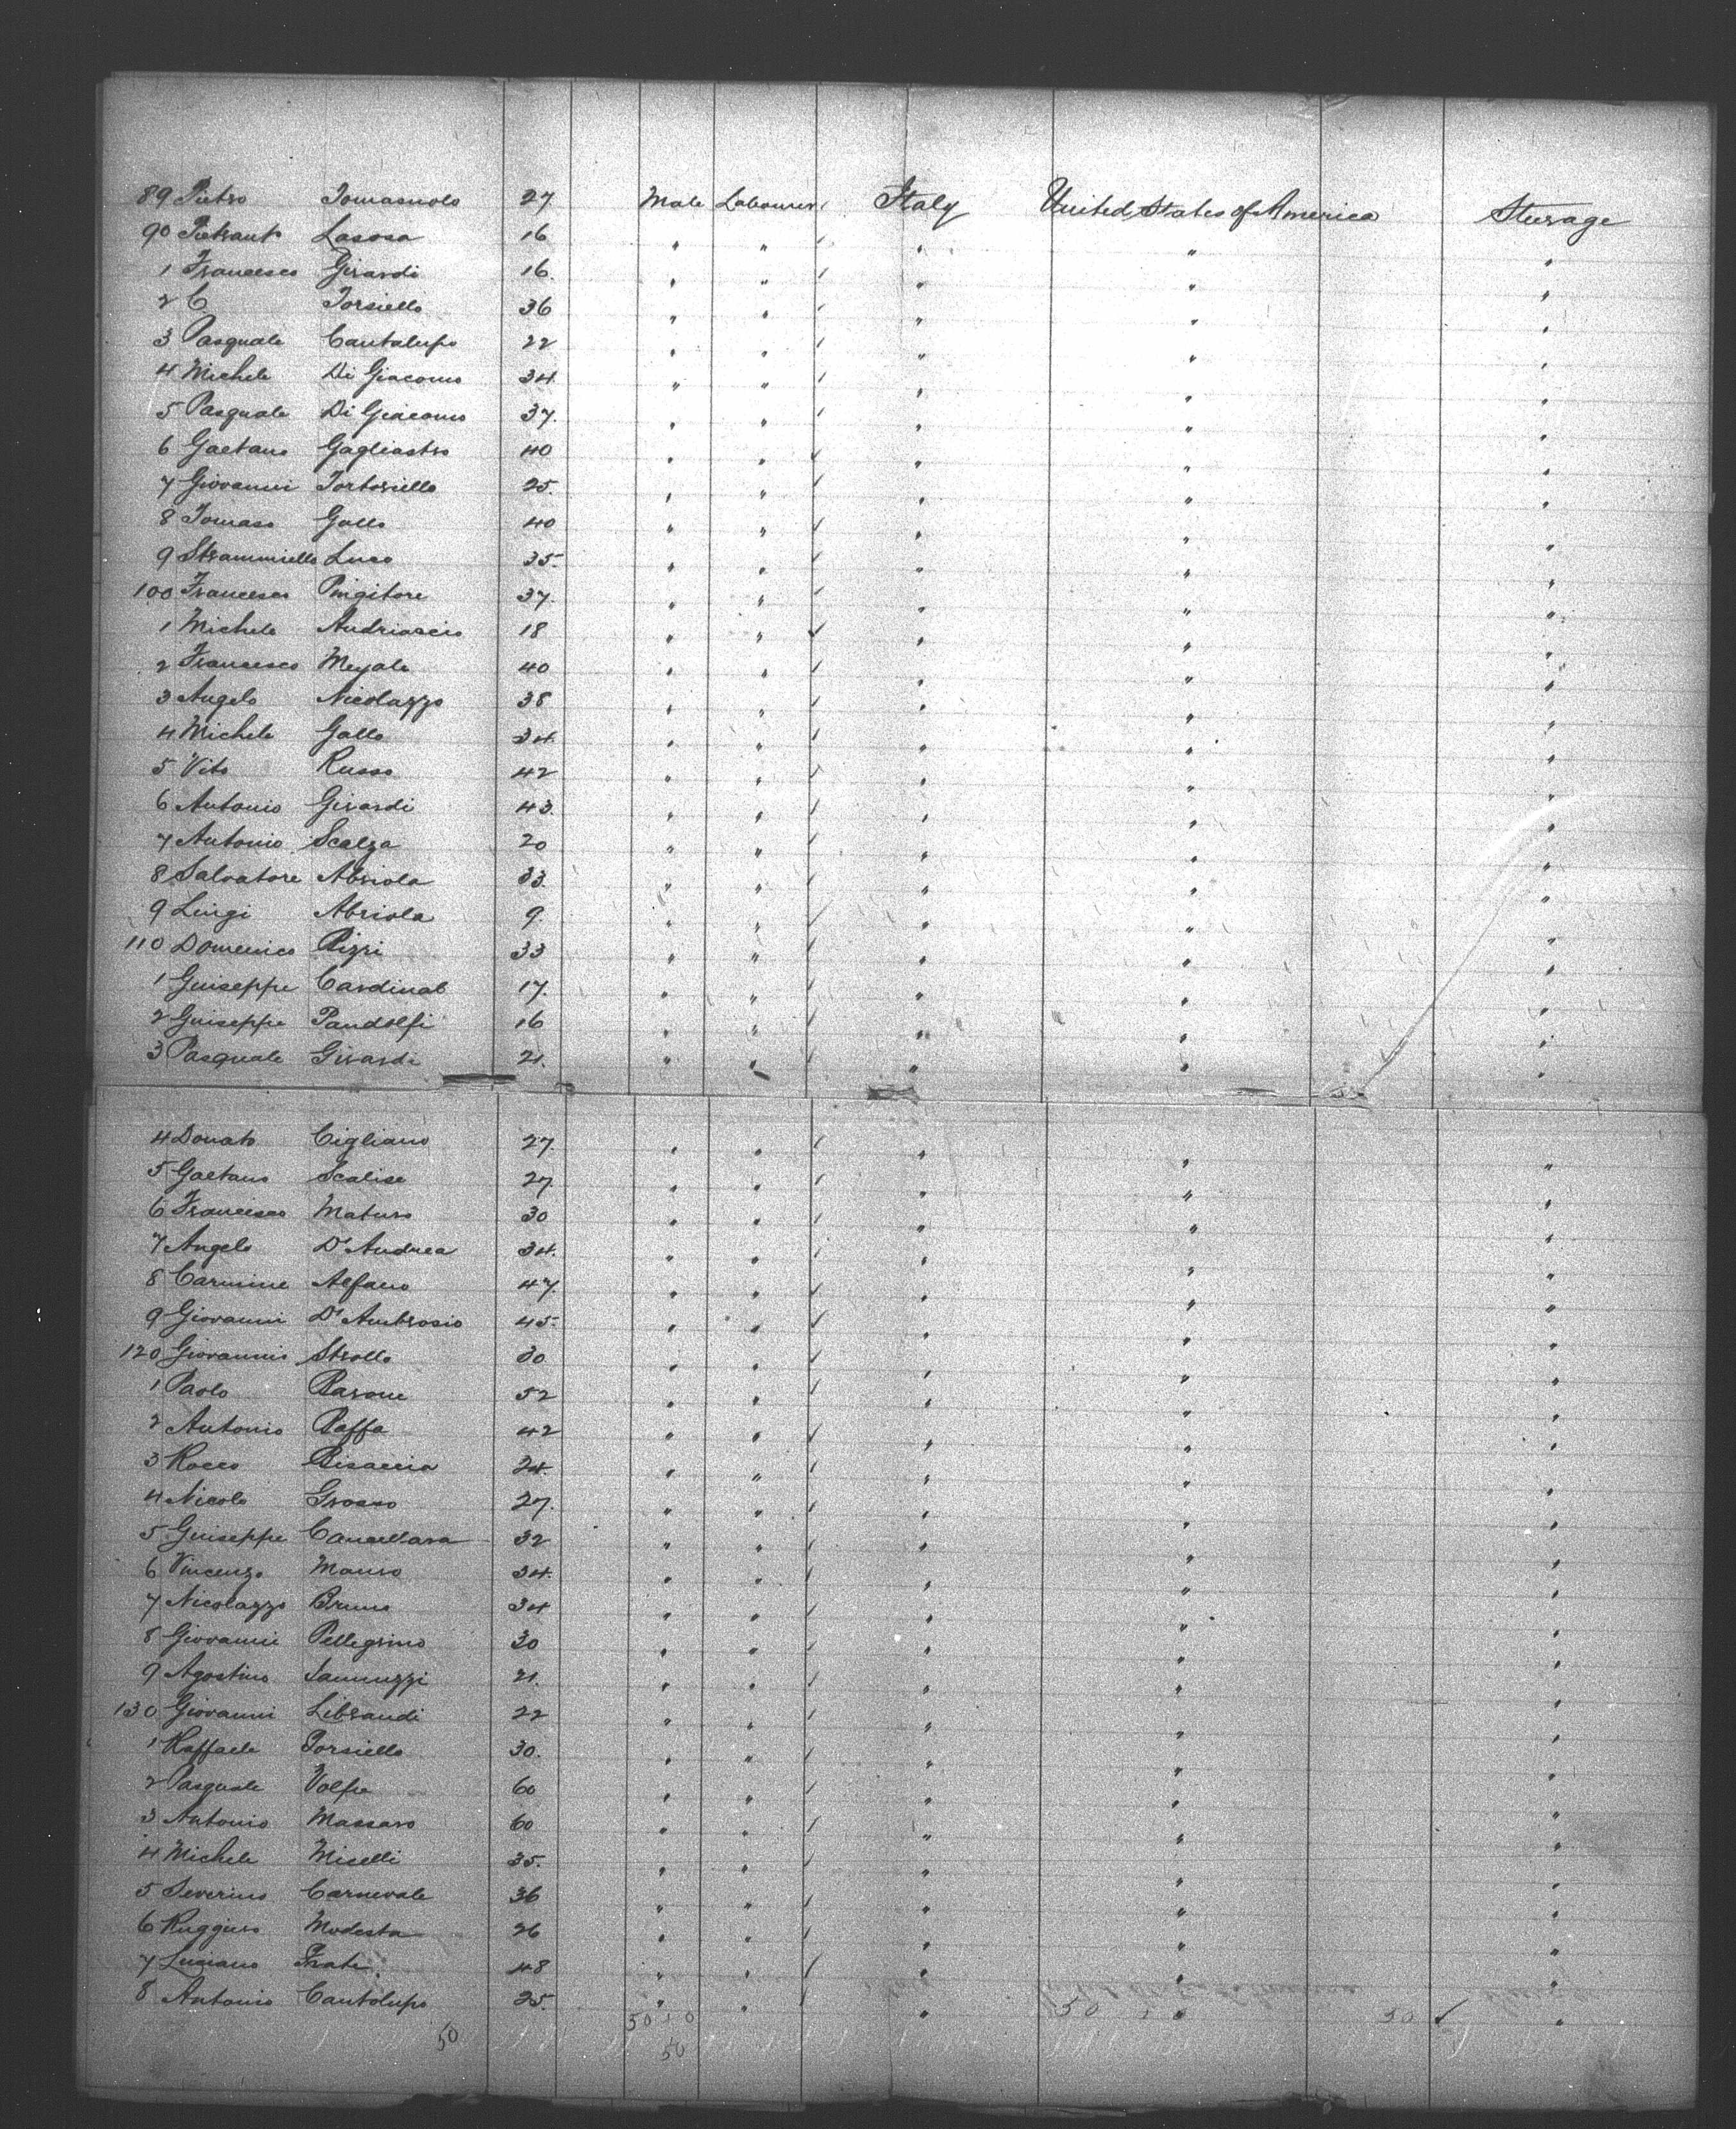 89 Pietro Tomasuolo 27 Male Labourer Italy United States of America Steerage
90 Pietrant Lasosa 16 " " " " "
1 Francesco Girardi 16. " " " " "
2 C Torsiello 36 " " " " "
3 Pasquale Cantalupo 22 " " " " "
4 Michele Di Giacomo 34. " " " " "
5 Pasquale Di Giacomo 37. " " " " "
6 Gaetano Gagliastro 40 " " " " "
7 Giovanni Tortoriello 25. " " " " "
8 Tomaso Gallo 40 " " " " "
9 Strammiello Luco 35. " " " " "
100 Francesco Pingitore 37. " " " " "
1 Michele Andriaccio 18 " " " " "
2 Francesco Meyale 40 " " " " "
3 Angelo Nicolazzo 38 " " " " "
4 Michele Gallo 34. " " " " "
5 Vito Russo 42 " " " " "
6 Antonio Girardi 43. " " " " "
7 Antonio Scalza 20 " " " " "
8 Salvatore Abriola 33. " " " " "
9 Luigi Abriola 9. " " " " "
110 Domenico Rizzi 33 " " " " "
1 Guiseppe Cardinal 17. " " " " "
2 Guiseppe Pandolfi 16 " " " " "
3 Pasquale Girardi 21. " " " " "
4 Donato Cigliano 27. " " " " "
5 Gaetano Scalise 27. " " " " "
6 Francesco Maturo 30 " " " " "
7 Angelo D'Andrea 34. " " " " "
8 Carmine Alfano 47. " " " " "
9 Giovanni D'Ambrosio 45. " " " " "
120 Giovannis Strollo 30 " " " " "
1 Paolo Barone 52 " " " " "
2 Antonio Raffa 42 " " " " "
3 Rocco Bisaccia 24. " " " " "
4 Nicola Grosso 27. " " " " "
5 Guiseppe Cancellara 32 " " " " "
6 Vincenzo Mauro 34. " " " " "
7 Nicolazzo Bruno 34 " " " " "
8 Giovanni Pellegrino 30 " " " " "
9 Agostino Iannuzzi 21. " " " " "
130 Giovanni Librandi 22 " " " " "
1 Raffaele Torsiello 30. " " " " "
2 Pasquale Volpe 60 " " " " "
3 Antonio Massaro 60 " " " " "
4 Michele Miselli 35. " " " " "
5 Severino Carnevale 36 " " " " "
6 Ruggiero Modesta 26 " " " " "
7 Luciano Prate 48 " " " " "
8 Antonio Cantolupo 25. " " " " "
50 0 50 50
50 50